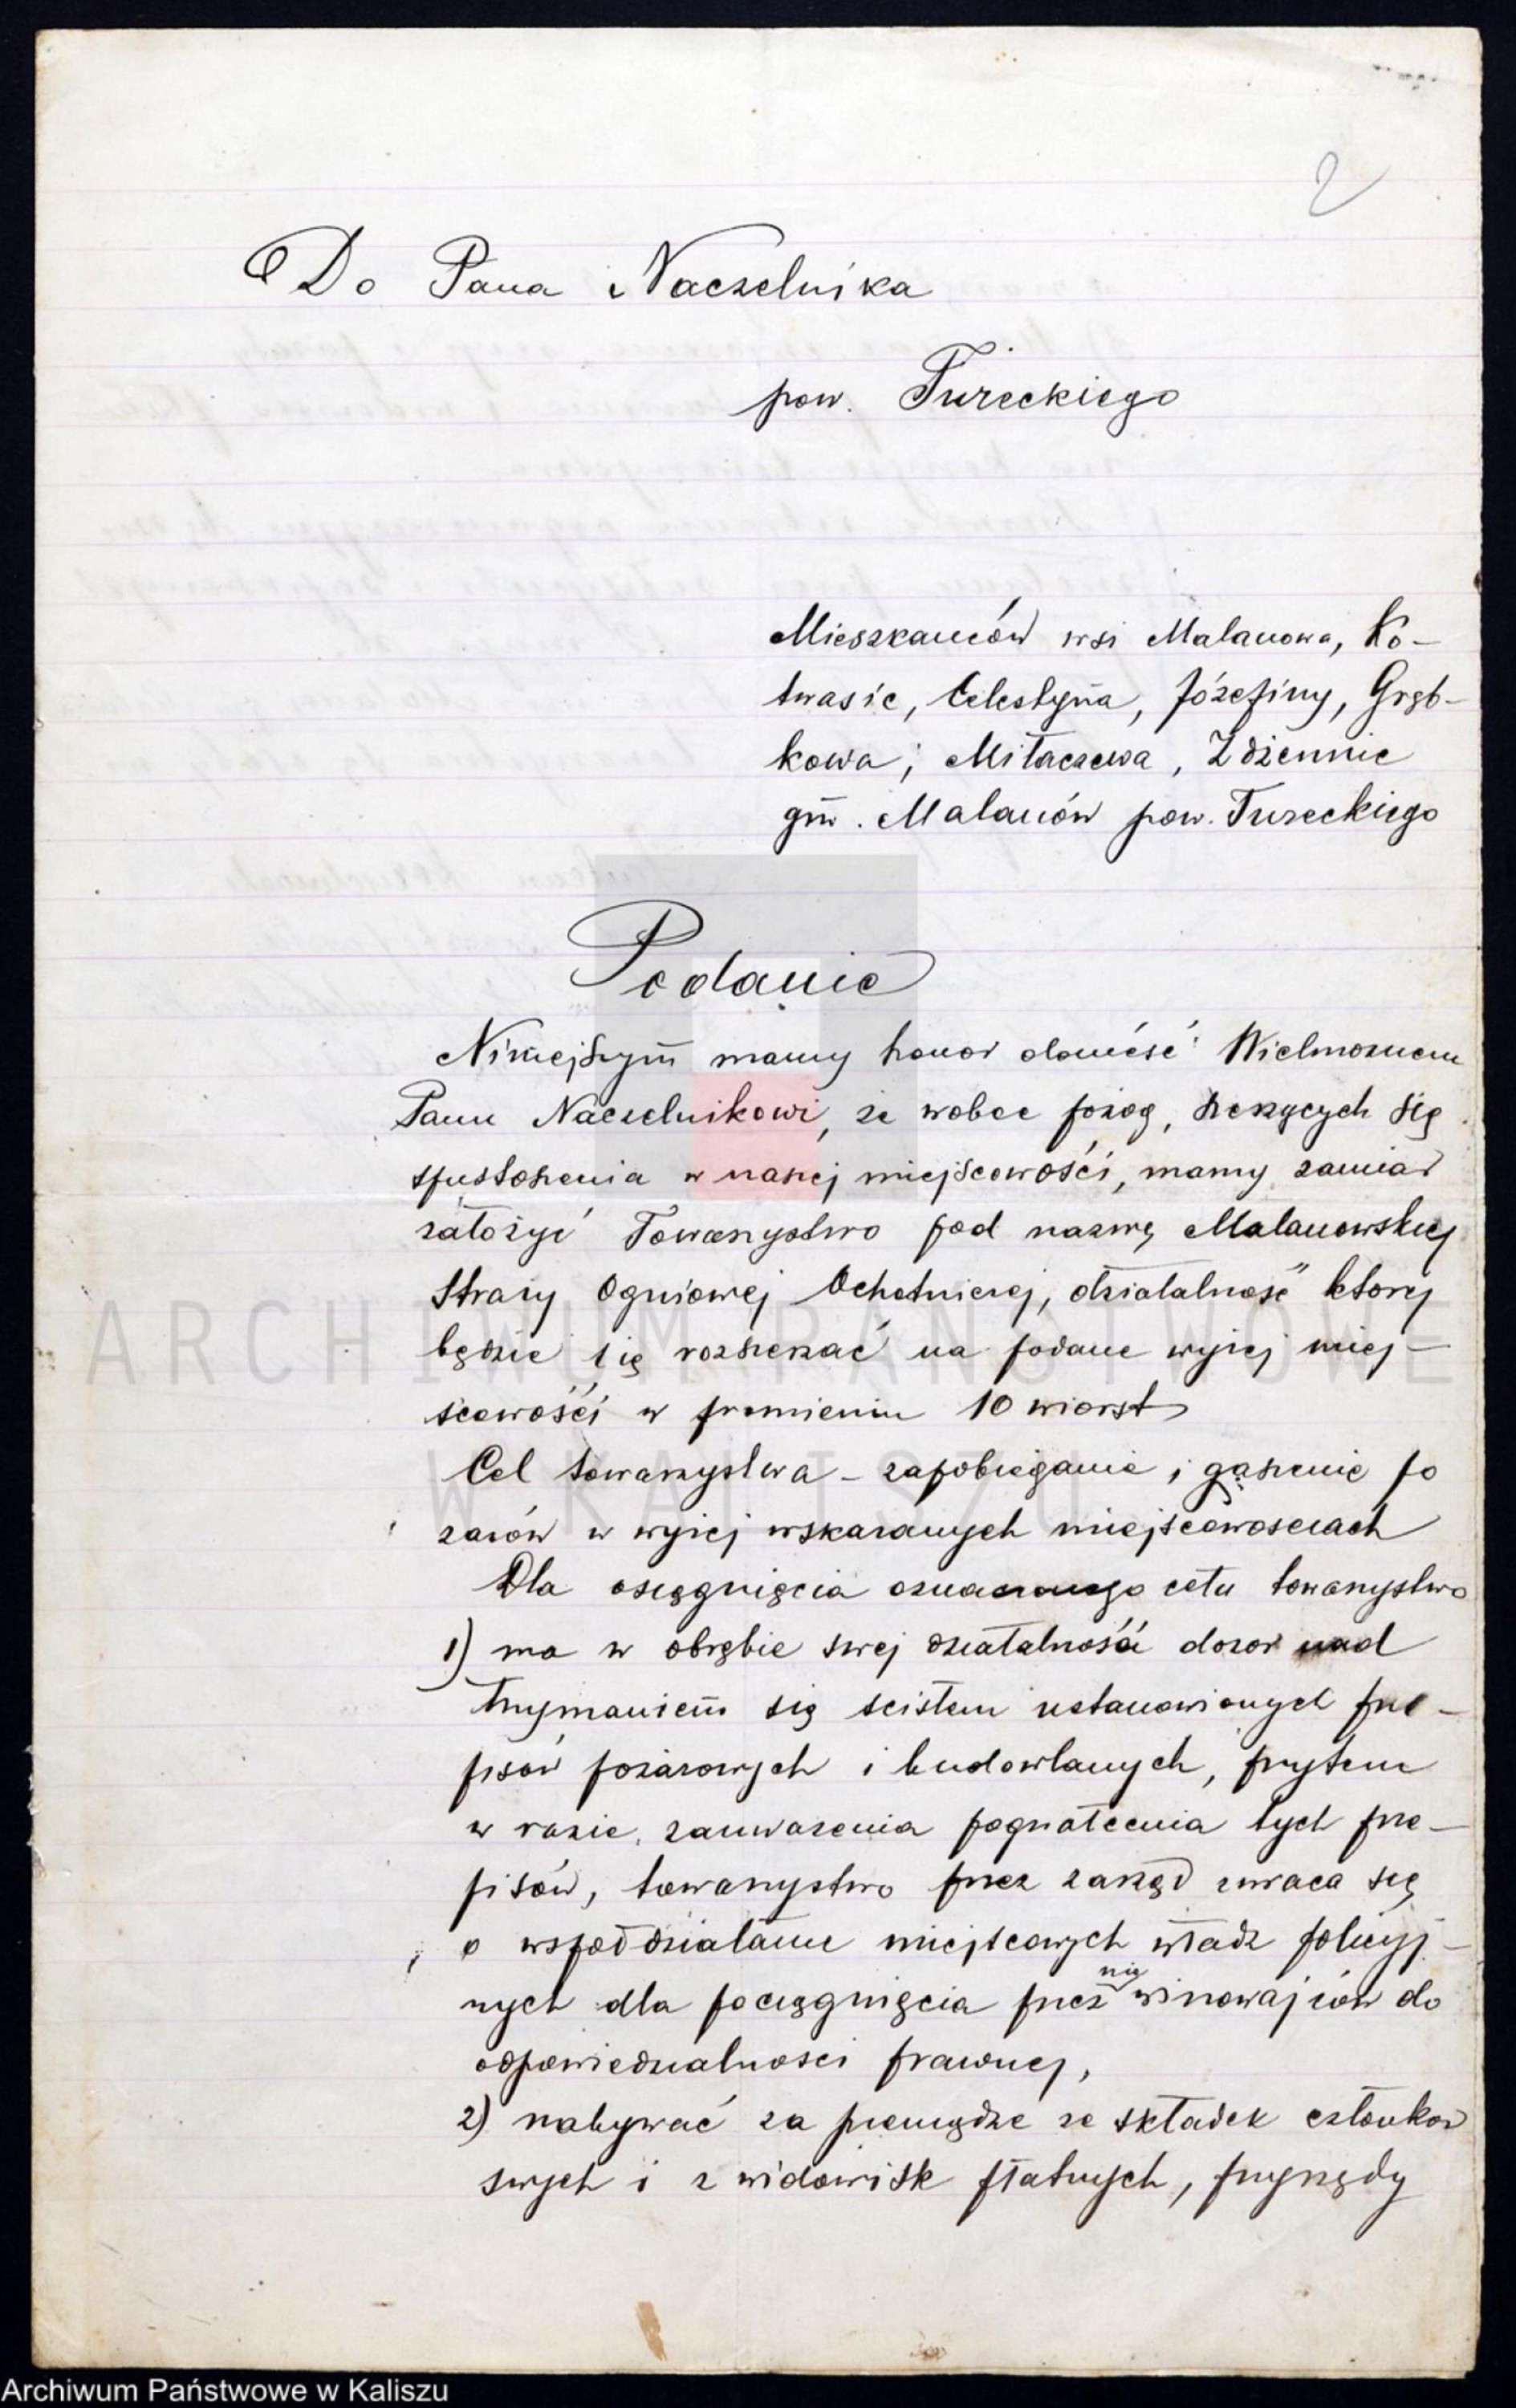 2
Do Pana Naczelnika
pow. Tureckiego
Mieszkańców wsi Malanowa, Ko-
twasic, Celestyna, Józefiny, Grąb-
kowa, Miłaczewa, Zdżennic
gm. Malanów pow. Tureckiego
Podanie
Niniejszym mamy honor donieść Wielmożnemu
Panu Naczelnikowi, że wobec pożog, szerzących się
spustoszenia w naszej miejscowości, mamy zamiar
założyć Towarzystwo pod nazwą Malanowskiej
Straży Ogniowej Ochotniczej, działalność ktorej
będzie się rozszerzać na podane wyżej miej-
scowości w promieniu 10 wiorst
Cel towarzystwa - zapobieganie i gaszenie po
żarów w wyżej wskazanych miejscowosciach
Dla osiągnięcia oznaczonego celu towarzystwo
1) ma w obrębie swej działalności dozor nad
trzymaniem się scisłem ustanowionych prze-
pisów pożarowych i budowlanych, przytem
w razie zauważenia pogwałcenia tych prze-
pisów, towarzystwo przez zarząd zwraca się
o współdziałanie miejscowych władz policyj-
nych dla pociągnięcia przez nię winowajców do
odpowiedzialnosci prawnej,
2) nabywać za pieniądze ze składek członków
swych i z widowisk płatnych, przyrządy
ARCHIWUM PAŃSTWOWE
W KALISZU
Archiwum Państwowe w Kaliszu